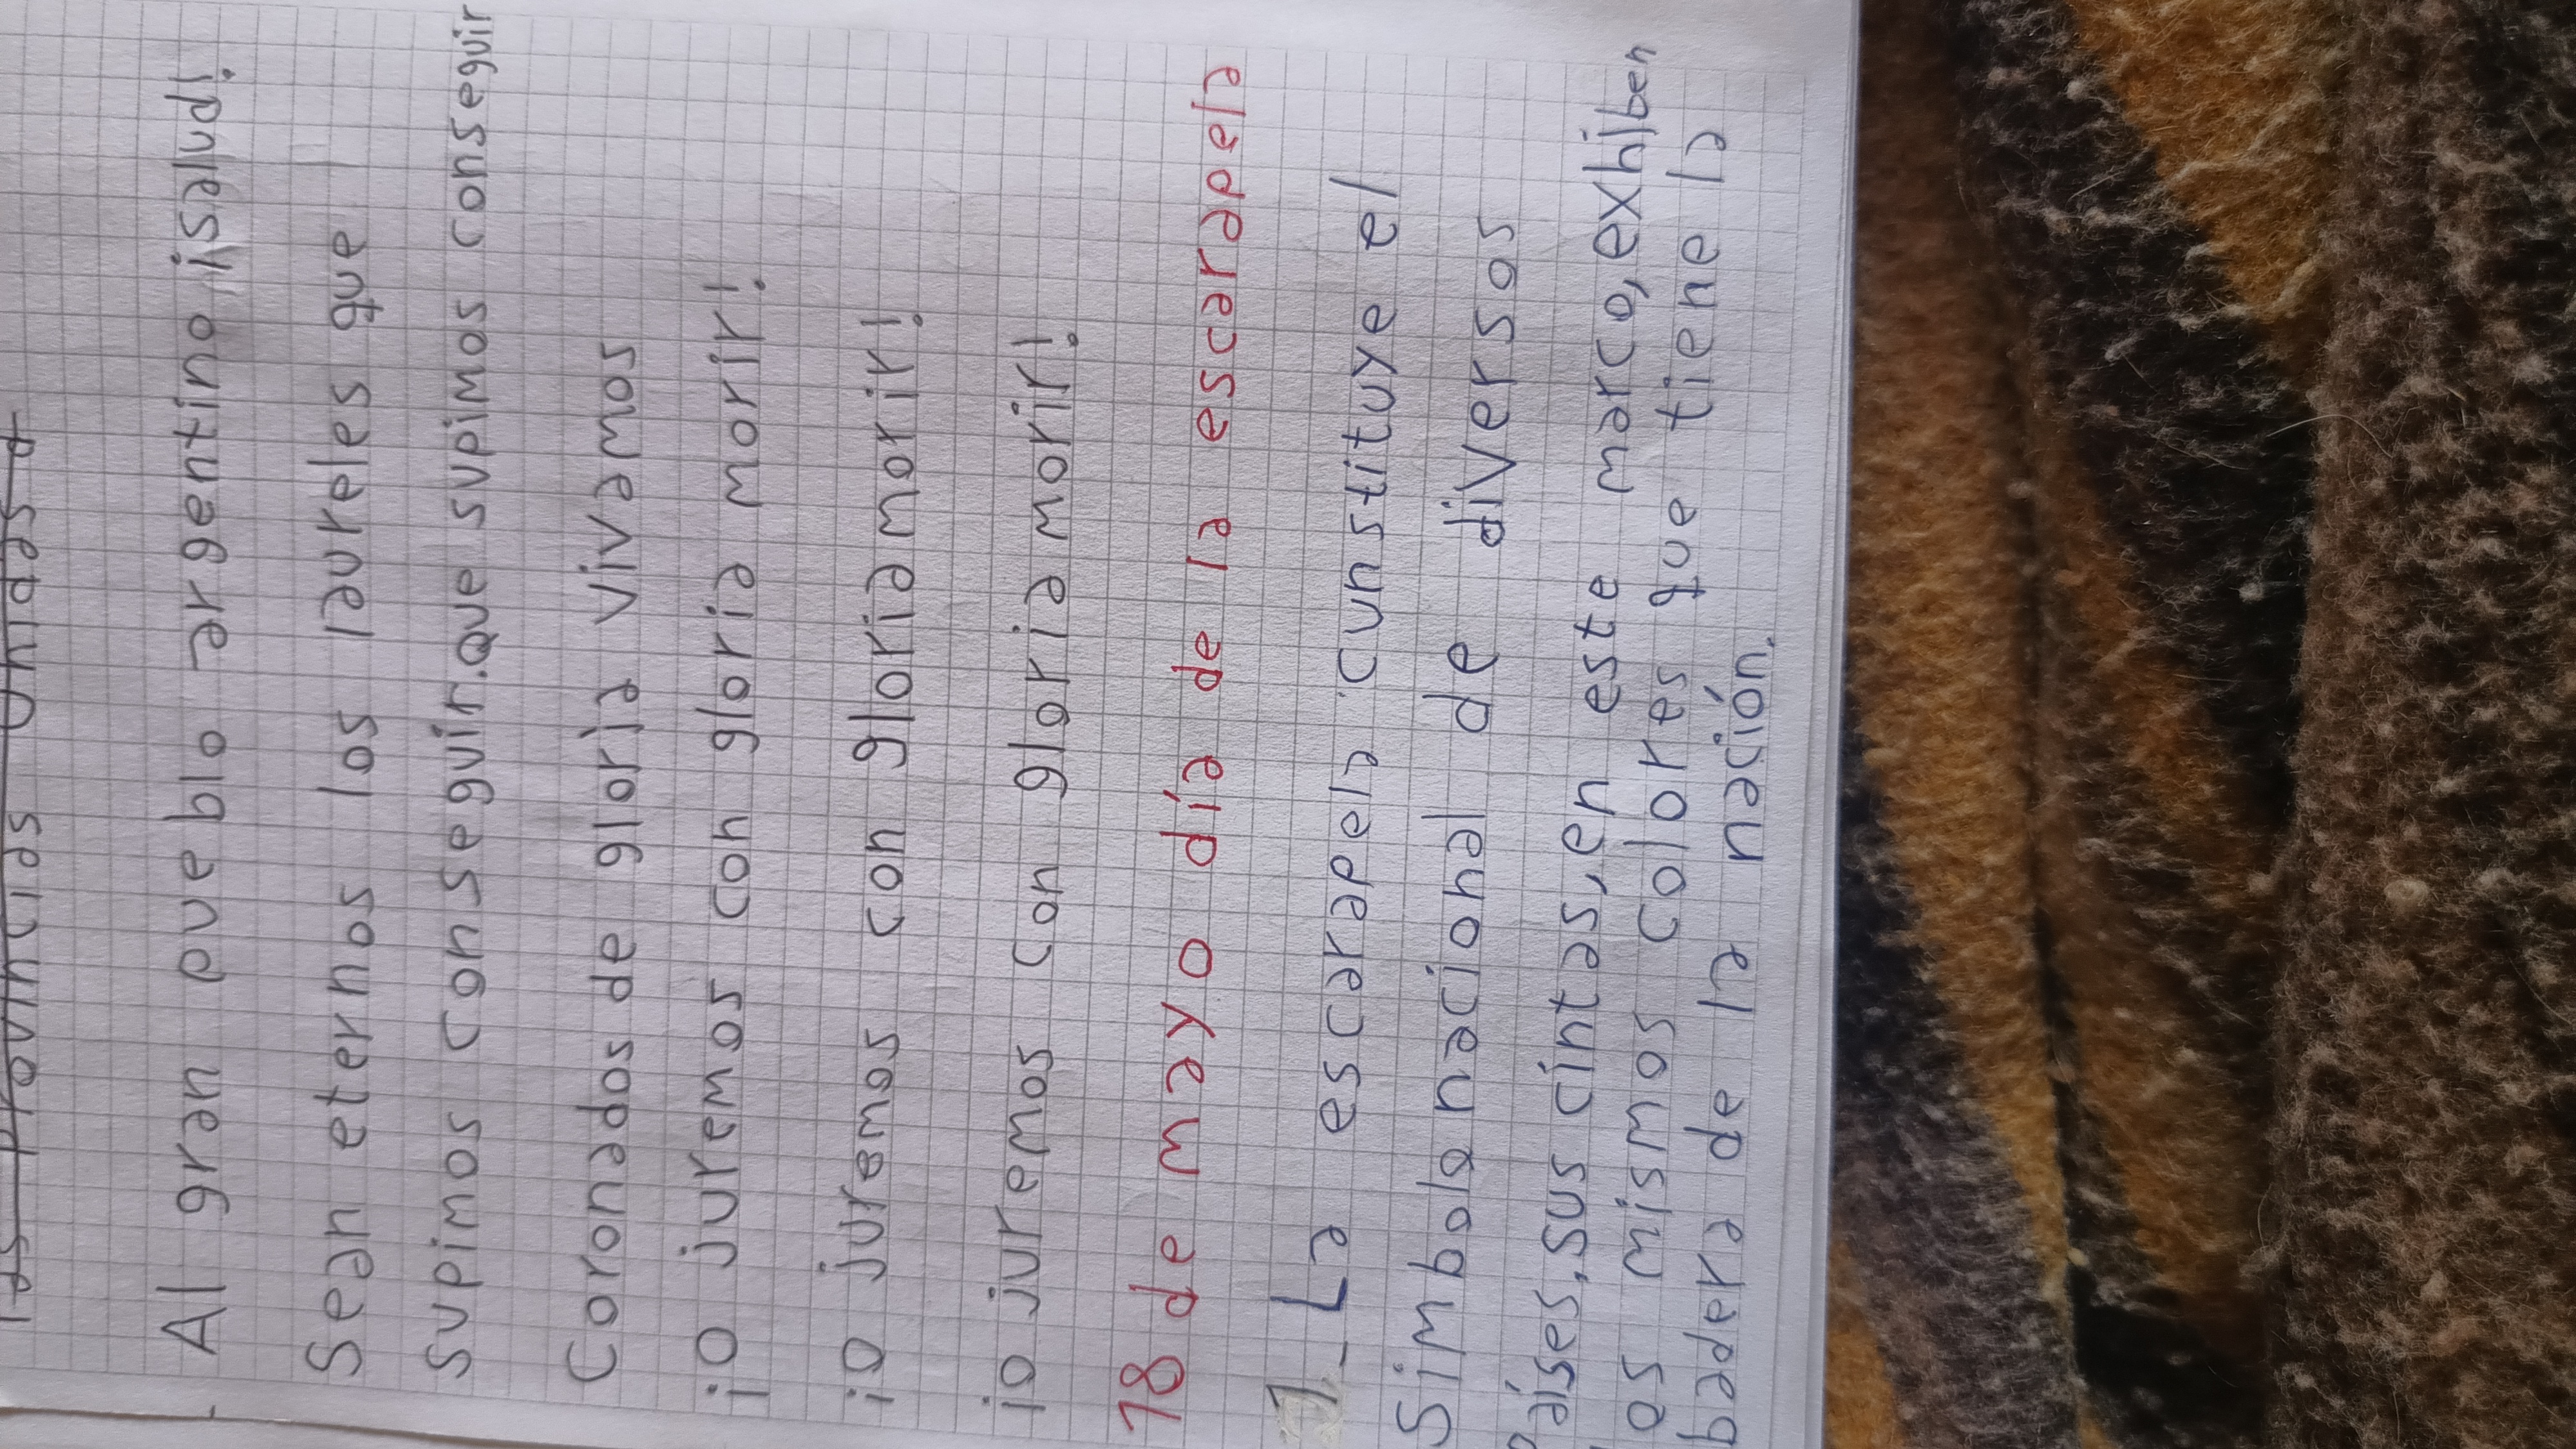 Al gran pueblo argentino ¡salud!
Sean eternos los laureles que
supimos conseguir.Que supimos conseguir
Coronados de gloria vivamos
¡O juremos con gloria morir!
¡O juremos con gloria morir!
¡o juremos con gloria morir!
18 de mayo día de la escarapela
1_ La escarapela cunstituye el
Simbola nacional de diversos
países,sus cintas,en este marco,exhiben
los mismos colores que tiene la
badera de la nación.